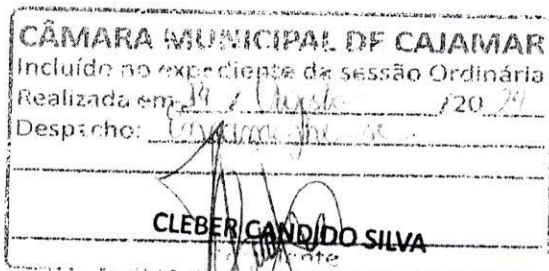 CÂMARA MUNICIPAL DE CAJAMAR
Incluído no expediente da sessão Ordinária
Realizada em 14 / Agosto /20 24
Despacho: Encaminhe-se
CLEBER CANDIDO SILVA
Presidente